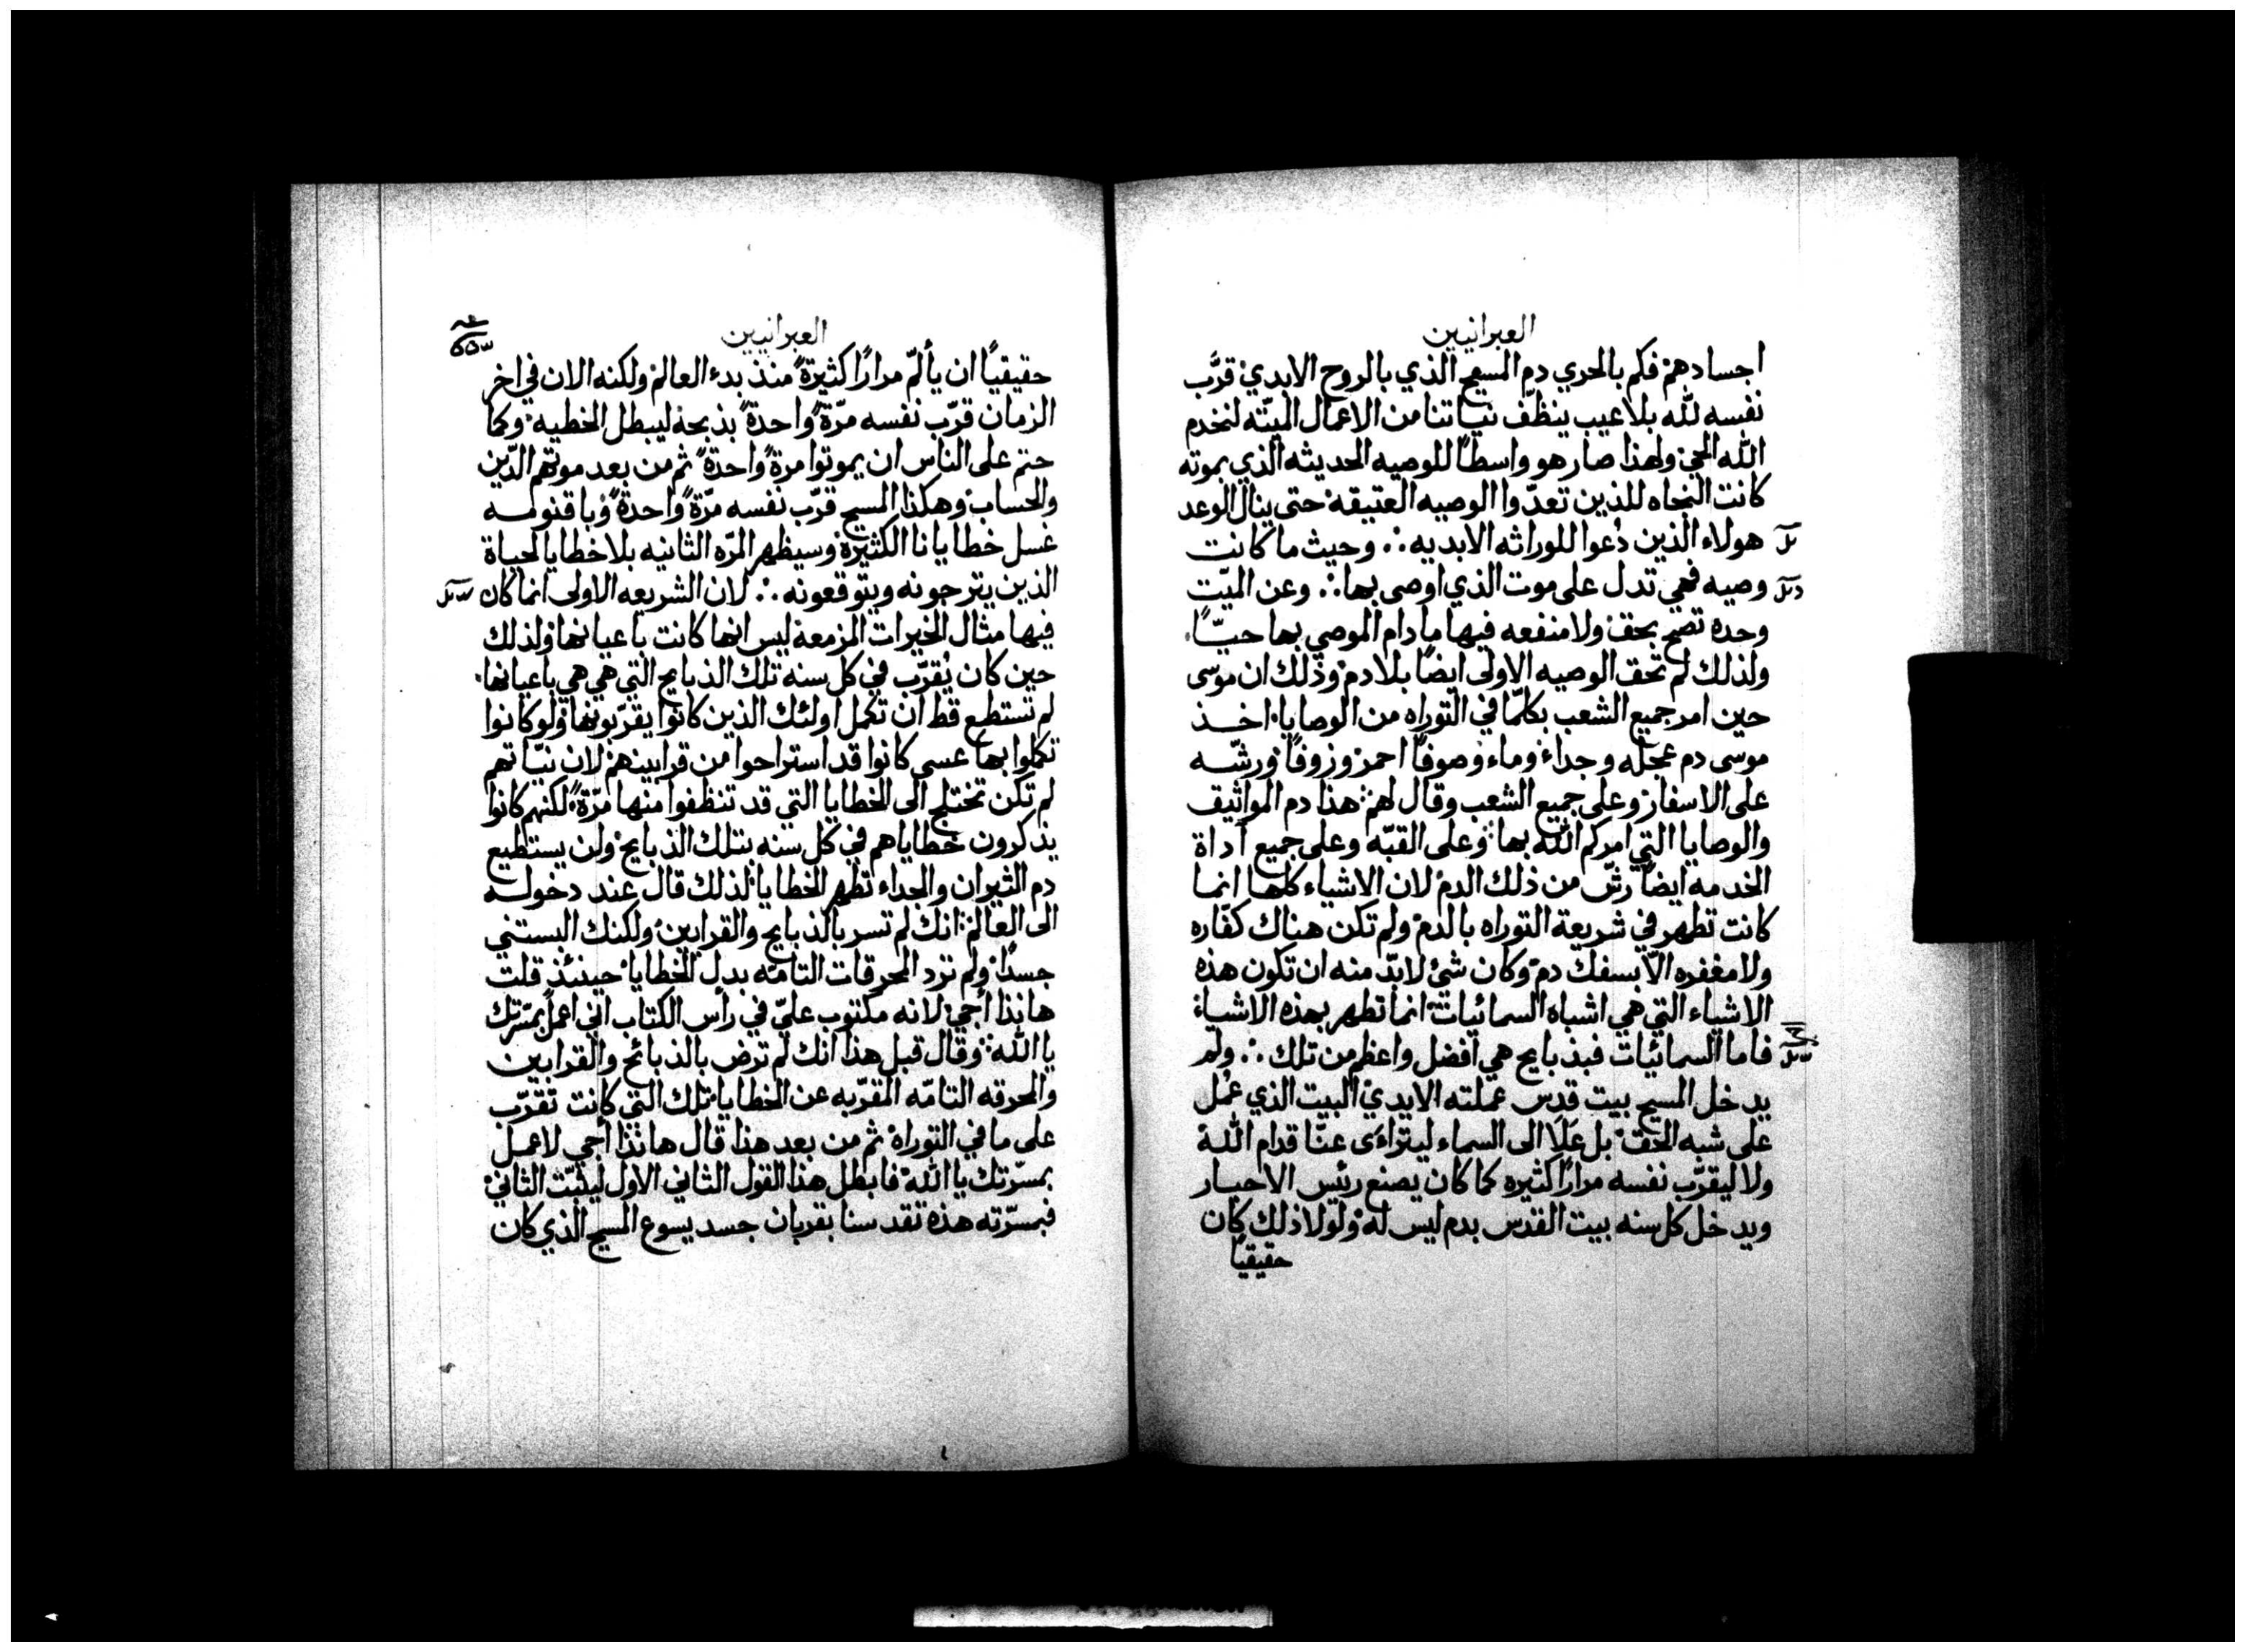 العبرانيين
اجسادهم فكم بالحري دم المسيح الذي بالروح الابدي قرَّب
نفسه لله بلا عيب ينظّف نياتنا من الاعمال الميّته لنخدم
الله الحي ولهذا صار هو واسطًا للوصيه الحديثه الذي بموته
كانت النجاه للذين تعدّوا الوصيه العتيقه حتى ينال الوعد
هولاء الذين دُعوا للوراثه الابديه ∴ وحيث ما كانت
وصيه فهي تدل على موت الذي اوصى بها ∴ وعن الميّت
وحده تصح بحق ولا منفعه فيها ما دام الموصي بها حيّاً
ولذلك لم تحق الوصيه الاولى ايضًا بلا دم وذلك ان موسى
حين امر جميع الشعب بكلمّا في التوراه من الوصايا اخذ
موسى دم عجله وجداء وماء وصوفًا احمر وزوفًا ورشّه
على الاسفار وعلى جميع الشعب وقال لهم هذا دم المواثيق
والوصايا التي امركم الله بها وعلى القبّه وعلى جميع آداة
الخدمه ايضًا رشّ من ذلك الدم لان الاشياء كلها انما
كانت تطهر في شريعة التوراه بالدم ولم تكن هناك كفّاره
ولا مغفره الّا بسفك دم وكان شئ لابدّ منه ان تكون هذه
الاشياء التي هي اشباه السمائيات انما تطهر بهذه الاشياء
فاما السمائيات فبذبايح هي افضل واعظم من تلك ∴ ولم
يدخل المسيح بيت قدس عملته الايدي البيت الذي عُمل
على شبه الحق بل عَلَا الى السماء ليتراءى عنّا قدام الله
ولا ليقرّب نفسه مرارًا كثيره كما كان يصنع رئيس الاحبار
ويدخل كل سنه بيت القدس بدم ليس له ولولا ذلك كان
حقيقيًا
العبرانيين
حقيقيًا ان يألمّ مرارًا كثيرةً منذ بدء العالم ولكنه الان في اخر
الزمان قرّب نفسه مرّةً واحدةً بذبحه ليبطل الخطيه وكما
حتم على الناس ان يموتوا مرةً واحدةً ثم من بعد موتهم الدّين
والحساب وهكذا المسيح قرّب نفسه مرّةً واحدةً وباقنومه
غسل خطايانا الكثيرة وسيظهر المرّه الثانيه بلا خطايا لحياة
الذين يترجونه ويتوقعونه ∴ لان الشريعه الاولى انما كان
فيها مثال الخيرات المزمعه ليس انها كانت باعيانها ولذلك
حين كان يُقرّب في كل سنه تلك الذبايح التي هي هي باعيانها
لم تستطع قط ان تكمل اولئك الذين كانوا يقرّبونها ولو كانوا
تكملوا بها عسى كانوا قد استراحوا من قرابينهم لان نيّاتهم
لم تكن تختلج الى الخطايا التي قد تنظفوا منها مرّةً لكنهم كانوا
يذكرون خطاياهم في كل سنه بتلك الذبايح ولن يستطيع
دم الثيران والجداء تطهر الخطايا لذلك قال عند دخوله
الى العالم انك لم تسر بالذبايح والقرابين ولكنك البستني
جسدًا ولم ترد المحرقات التامّه بدل الخطايا حينئذ قلت
هانذا أجي لانه مكتوب عليّ في رأس الكتاب اني اعمل بمسّرتك
يا الله وقال قبل هذا انك لم ترض بالذبائح والقرابين
والمحرقه التامّه المقرّبه عن الخطايا تلك التي كانت تقرّب
على ما في التوراه ثم من بعد هذا قال هانذا أجي لاعمل
بمسرّتك يا الله فابطل هذا القول الثاني الاول ليثبّت الثاني
فبمسرّته هذه تقدسنا بقربان جسد يسوع المسيح الذي كان